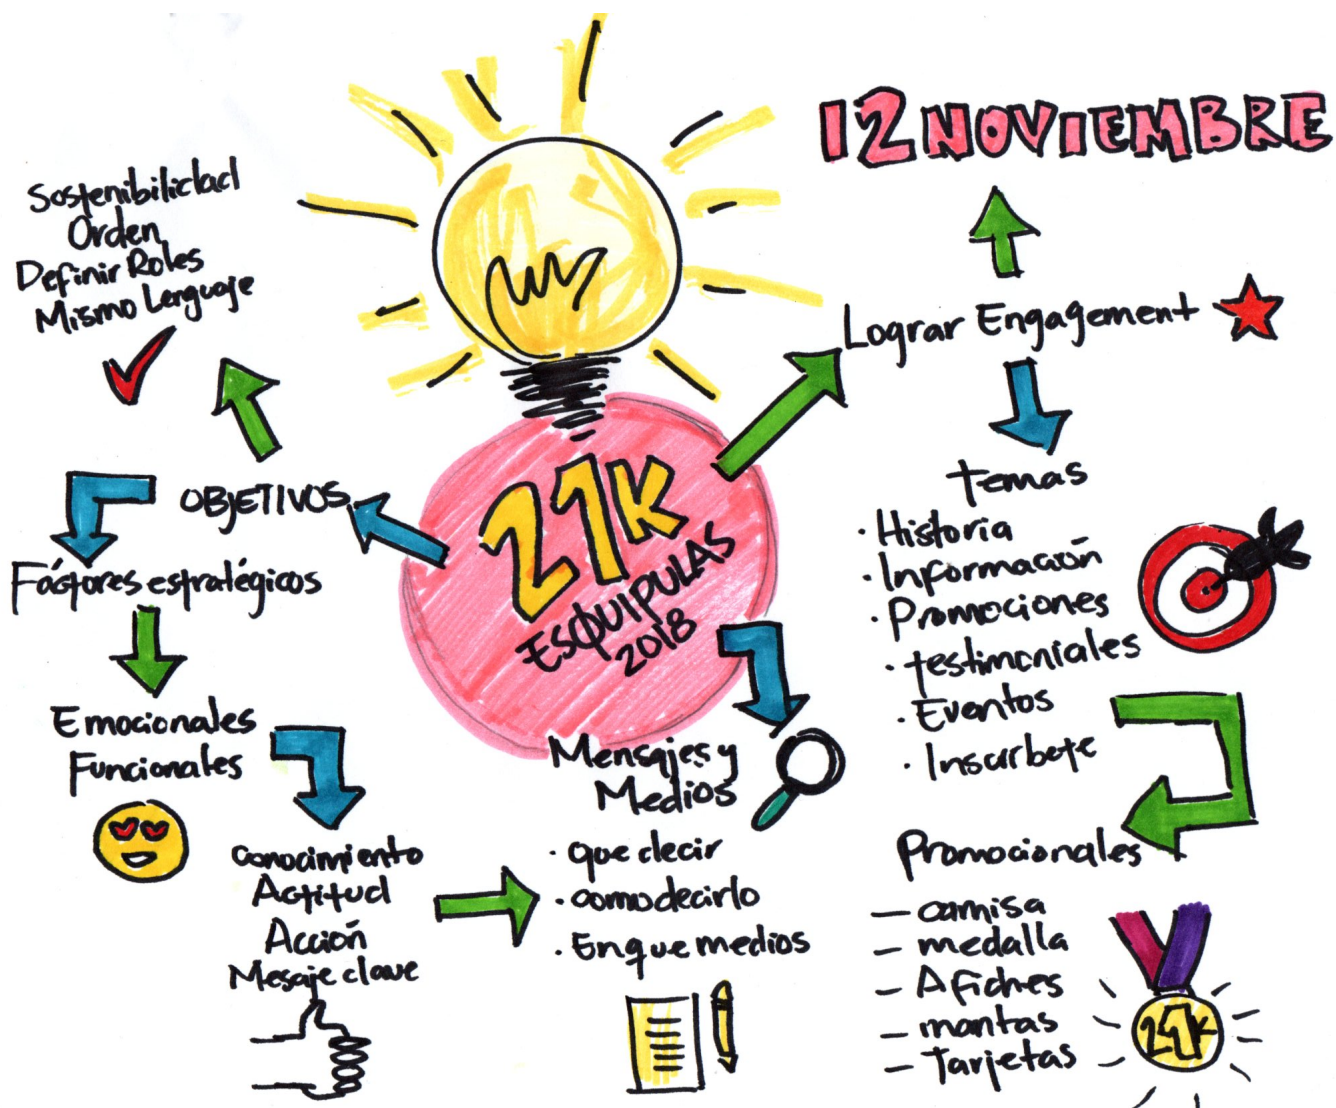 12 NOVIEMBRE
Sostenibilidad
Orden
Definir Roles
Mismo Lenguaje
Lograr Engagement
OBJETIVOS
Fáctores estratégicos
Emocionales
Funcionales
conocimiento
Actitud
Acción
Mesaje clave
21K
ESQUIPULAS
2018
Mensajes y
Medios
· que decir
· como decirlo
· En que medios
temas
· Historia
· Información
· Promociones
· testimoniales
· Eventos
· Inscribete
Promocionales
- camisa
- medalla
- Afiches
- mantas
- Tarjetas
21K